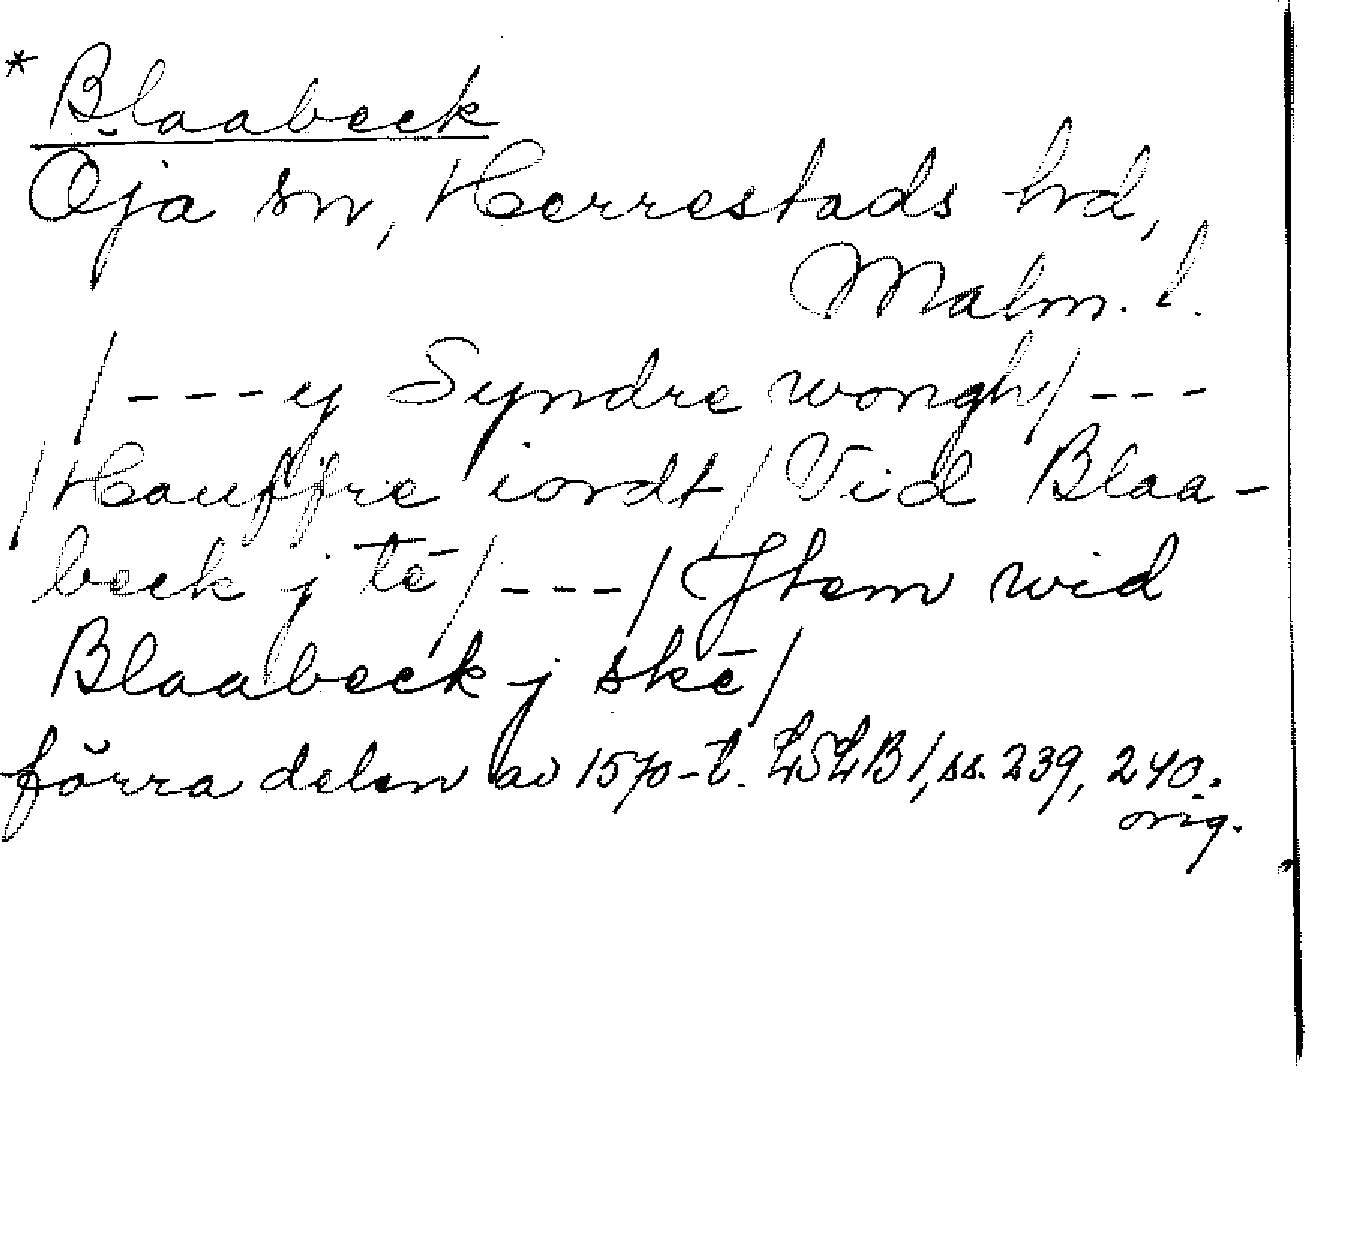 * Blaabeck
Öja sn, Herrestads hd,
Malm. l.
/---y Syndre wongh/---
/Hauffre iordt/ Vid Blaa-
beck j tē/---/ Jtem wid
Blaabeck j skē/
förra delen av 1570-t. LSLB 1, ss. 239, 240.
orig.